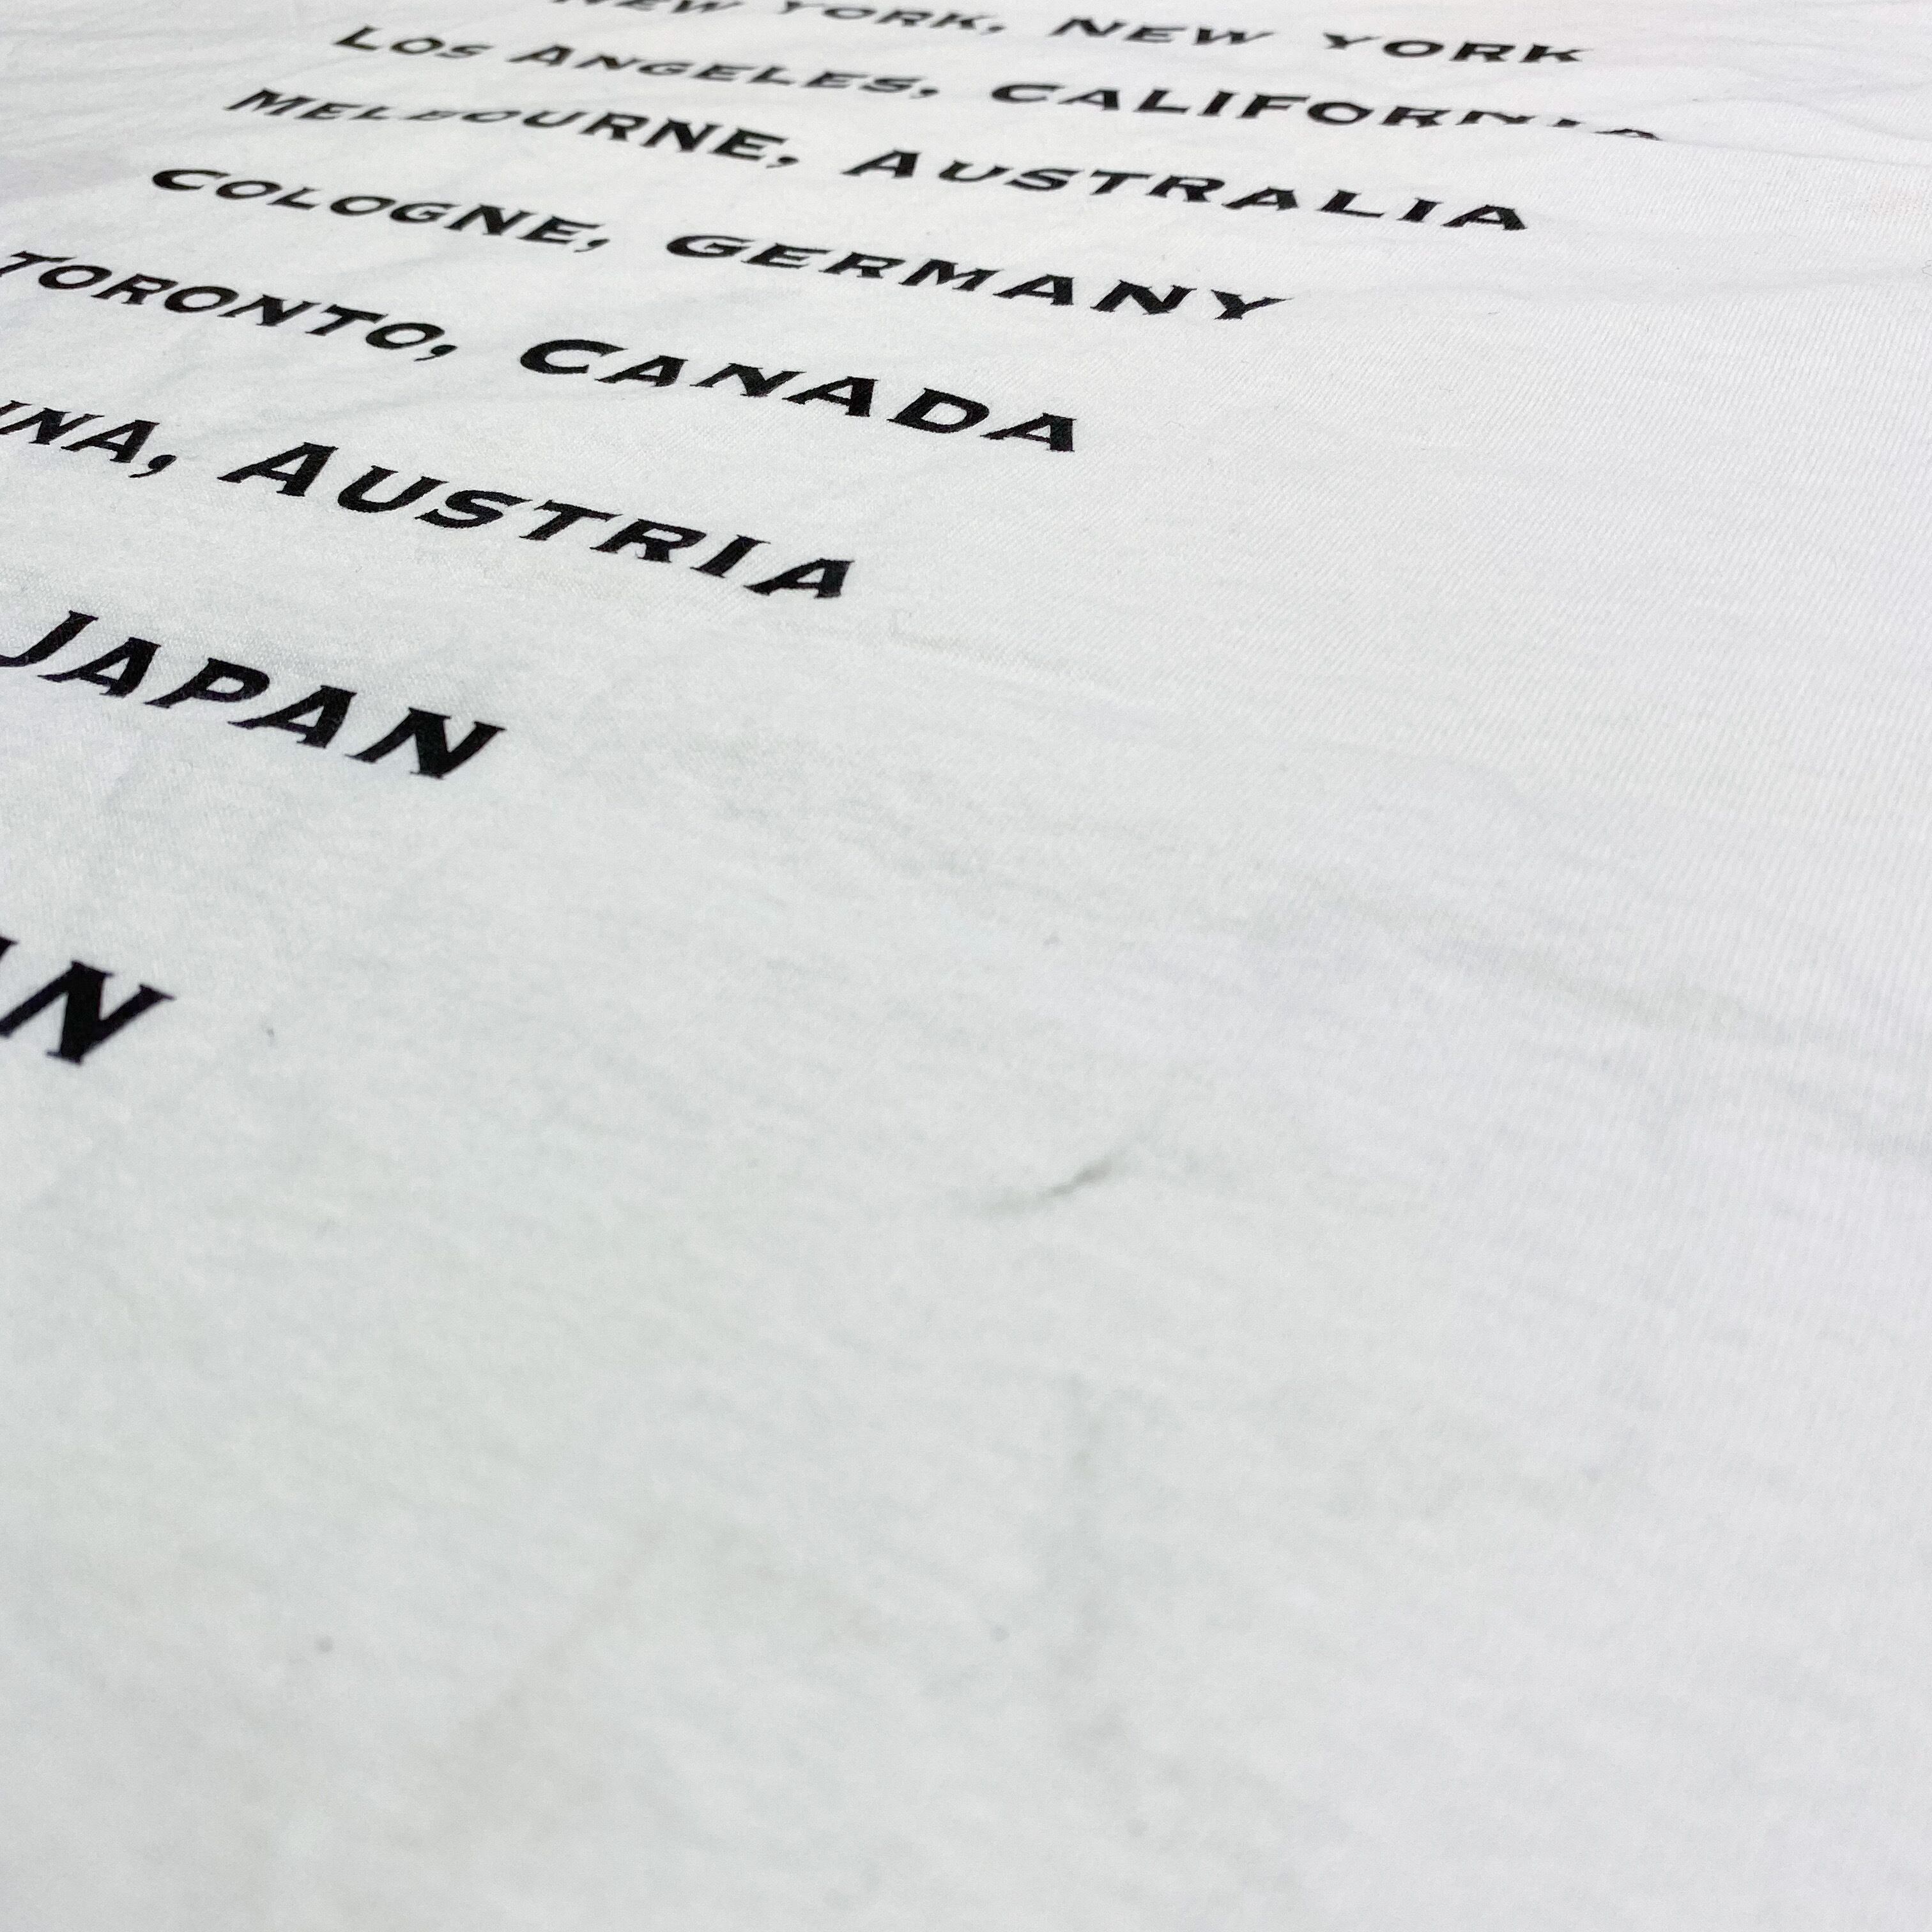 NEW YORK, NEW YORK
LOS ANGELES, CALIFORNIA
MELBOURNE, AUSTRALIA
COLOGNE, GERMANY
TORONTO, CANADA
AUSTRIA
JAPAN